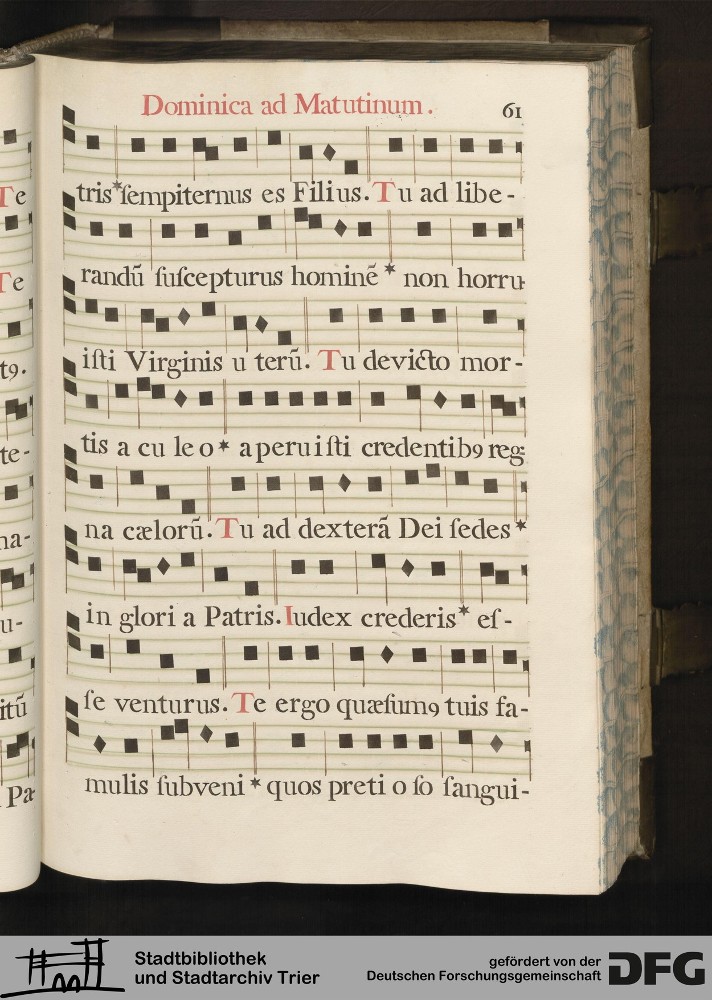 Dominica ad Matutinum. 61
tris*ſempiternus es Filius. Tu ad libe-
randũ ſuſcepturus hominẽ * non horru-
iſti Virginis u terũ. Tu devicto mor-
tis a cu le o * aperuiſti credentibꝯ reg-
na cælorũ. Tu ad dexterã Dei ſedes *
in glori a Patris. Iudex crederis * eſ-
ſe venturus. Te ergo quæſumꝯ tuis fa-
mulis ſubveni * quos preti o ſo ſangui-
Te
Te
tꝯ.
te-
na-
u-
itũ
Pa-
Stadtbibliothek
und Stadtarchiv Trier
gefördert von der
Deutschen Forschungsgemeinschaft
DFG